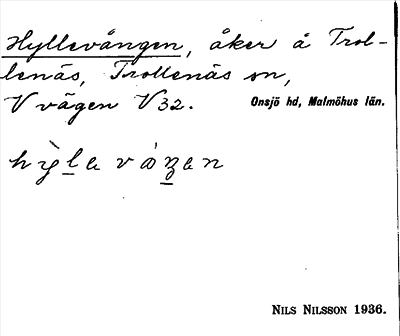 Hyllevången, åker å Trol-
lenäs, Trollenäs sn,
V vägen V32. Onsjö hd, Malmöhus län.
NILS NILSSON 1936.